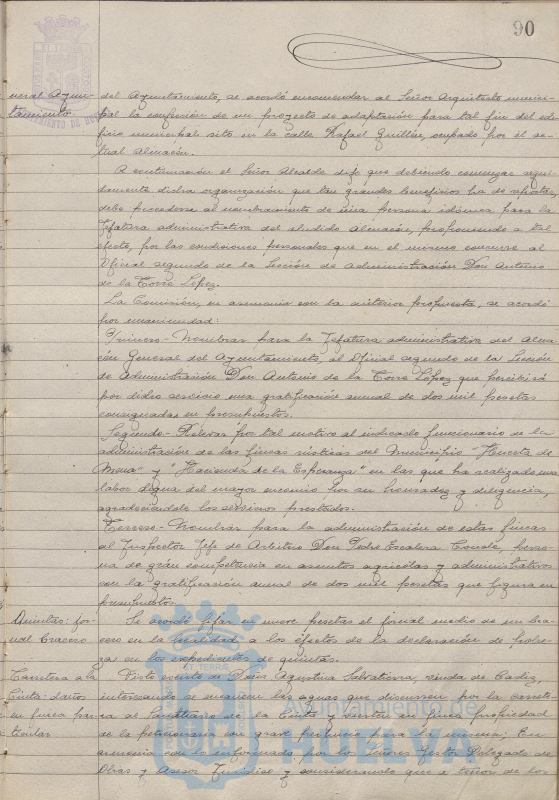 90
neral Ayun-
tamiento
del Ayuntamiento, se acordó encomendar al Señor Arquitecto munici-
pal la confección de un proyecto de adaptación para tal fin del edi-
ficio municipal sito en la calle Rafael Guillén, ocupado por el ac-
tual Almacén.
A continuación el Señor Alcalde dijo que debiendo comenzar segui-
damente dicha organización que tan grandes beneficios ha de reportar,
debe procederse al nombramiento de una persona idónea para la
Jefatura administrativa del aludido Almacén, proponiendo a tal
efecto, por las condiciones personales que en el mismo concurre al
Oficial segundo de la Sección de Administración Don Antonio
de la Torre López.
La Comisión, en armonía con la anterior propuesta, se acordó
por unanimidad:
Primero- Nombrar para la Jefatura administrativa del Alma-
cén General del Ayuntamiento, al Oficial segundo de la Sección
de Administración Don Antonio de la Torre López que percibirá
por dicho servicio una gratificación anual de dos mil pesetas
consignadas en presupuestos.
Segundo- Relevar por tal motivo al indicado funcionario de la
administración de las fincas rústicas del Municipio "Huerta de
Mena" y "Hacienda de la Esperanza" en las que ha realizado una
labor digna del mayor encomio por su honradez y diligencia,
agradeciéndole los servicios prestados.
Tercero- Nombrar para la administración de estas fincas
al Inspector Jefe de Arbitrios Don Pedro Escalera perso-
na de gran competencia en asuntos agrícolas y administrativos
con la gratificación anual de dos mil pesetas que figura en
presupuestos.
Quintas: jor-
nal bracero
Se acordó fijar en nueve pesetas el jornal medio de un bra-
cero en la localidad a los efectos de la declaración de pobre-
za en los expedientes de quintas.
Carretera a la
Cinta: daños
en finca par-
ticular
Visto escrito de Doña Agustina Salvatierra, viuda de Cádiz,
interesando se encaucen las aguas que discurren por la carrete-
ra al Santuario de la Cinta y vierten en finca propiedad
de la peticionaria con grave perjuicio para la misma; En
armonía con lo informado por los Señores Gestor Delegado de
Obras y Asesor Jurídico y considerando que a tenor de los
Ayuntamiento de
HUELVA